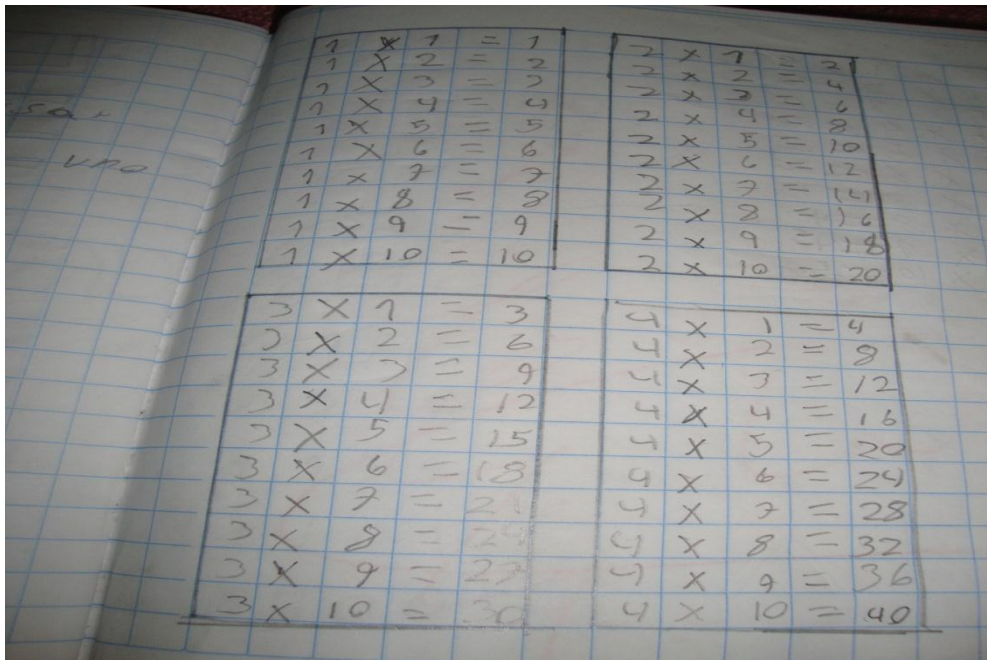 uno
1 x 1 = 1
1 x 2 = 2
1 x 3 = 3
1 x 4 = 4
1 x 5 = 5
1 x 6 = 6
1 x 7 = 7
1 x 8 = 8
1 x 9 = 9
1 x 10 = 10
2 x 1 = 2
2 x 2 = 4
2 x 3 = 6
2 x 4 = 8
2 x 5 = 10
2 x 6 = 12
2 x 7 = 14
2 x 8 = 16
2 x 9 = 18
2 x 10 = 20
3 x 1 = 3
3 x 2 = 6
3 x 3 = 9
3 x 4 = 12
3 x 5 = 15
3 x 6 = 18
3 x 7 = 21
3 x 8 = 24
3 x 9 = 27
3 x 10 = 30
4 x 1 = 4
4 x 2 = 8
4 x 3 = 12
4 x 4 = 16
4 x 5 = 20
4 x 6 = 24
4 x 7 = 28
4 x 8 = 32
4 x 9 = 36
4 x 10 = 40